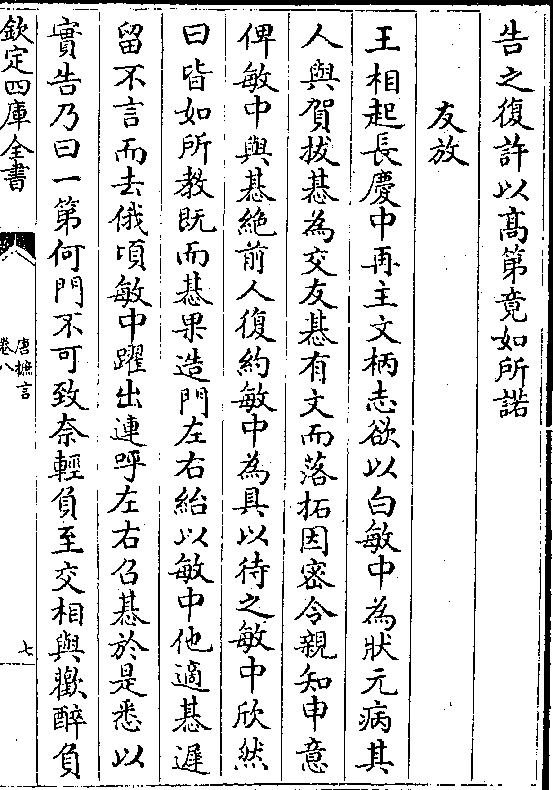 告之復許以髙第竟如所諾
友放
王相起長慶中再主文柄志欲以白敏中為狀元病其
人與賀拔惎為交友惎有文而落拓因密令親知申意
俾敏中與惎絶前人復約敏中為具以待之敏中欣然
曰皆如所教既而惎果造門左右紿以敏中他適惎遲
留不言而去俄頃敏中躍出連呼左右召惎於是悉以
實告乃曰一第何門不可致奈輕負至交相與歡醉負
欽定四庫全書
唐摭言
卷八
七